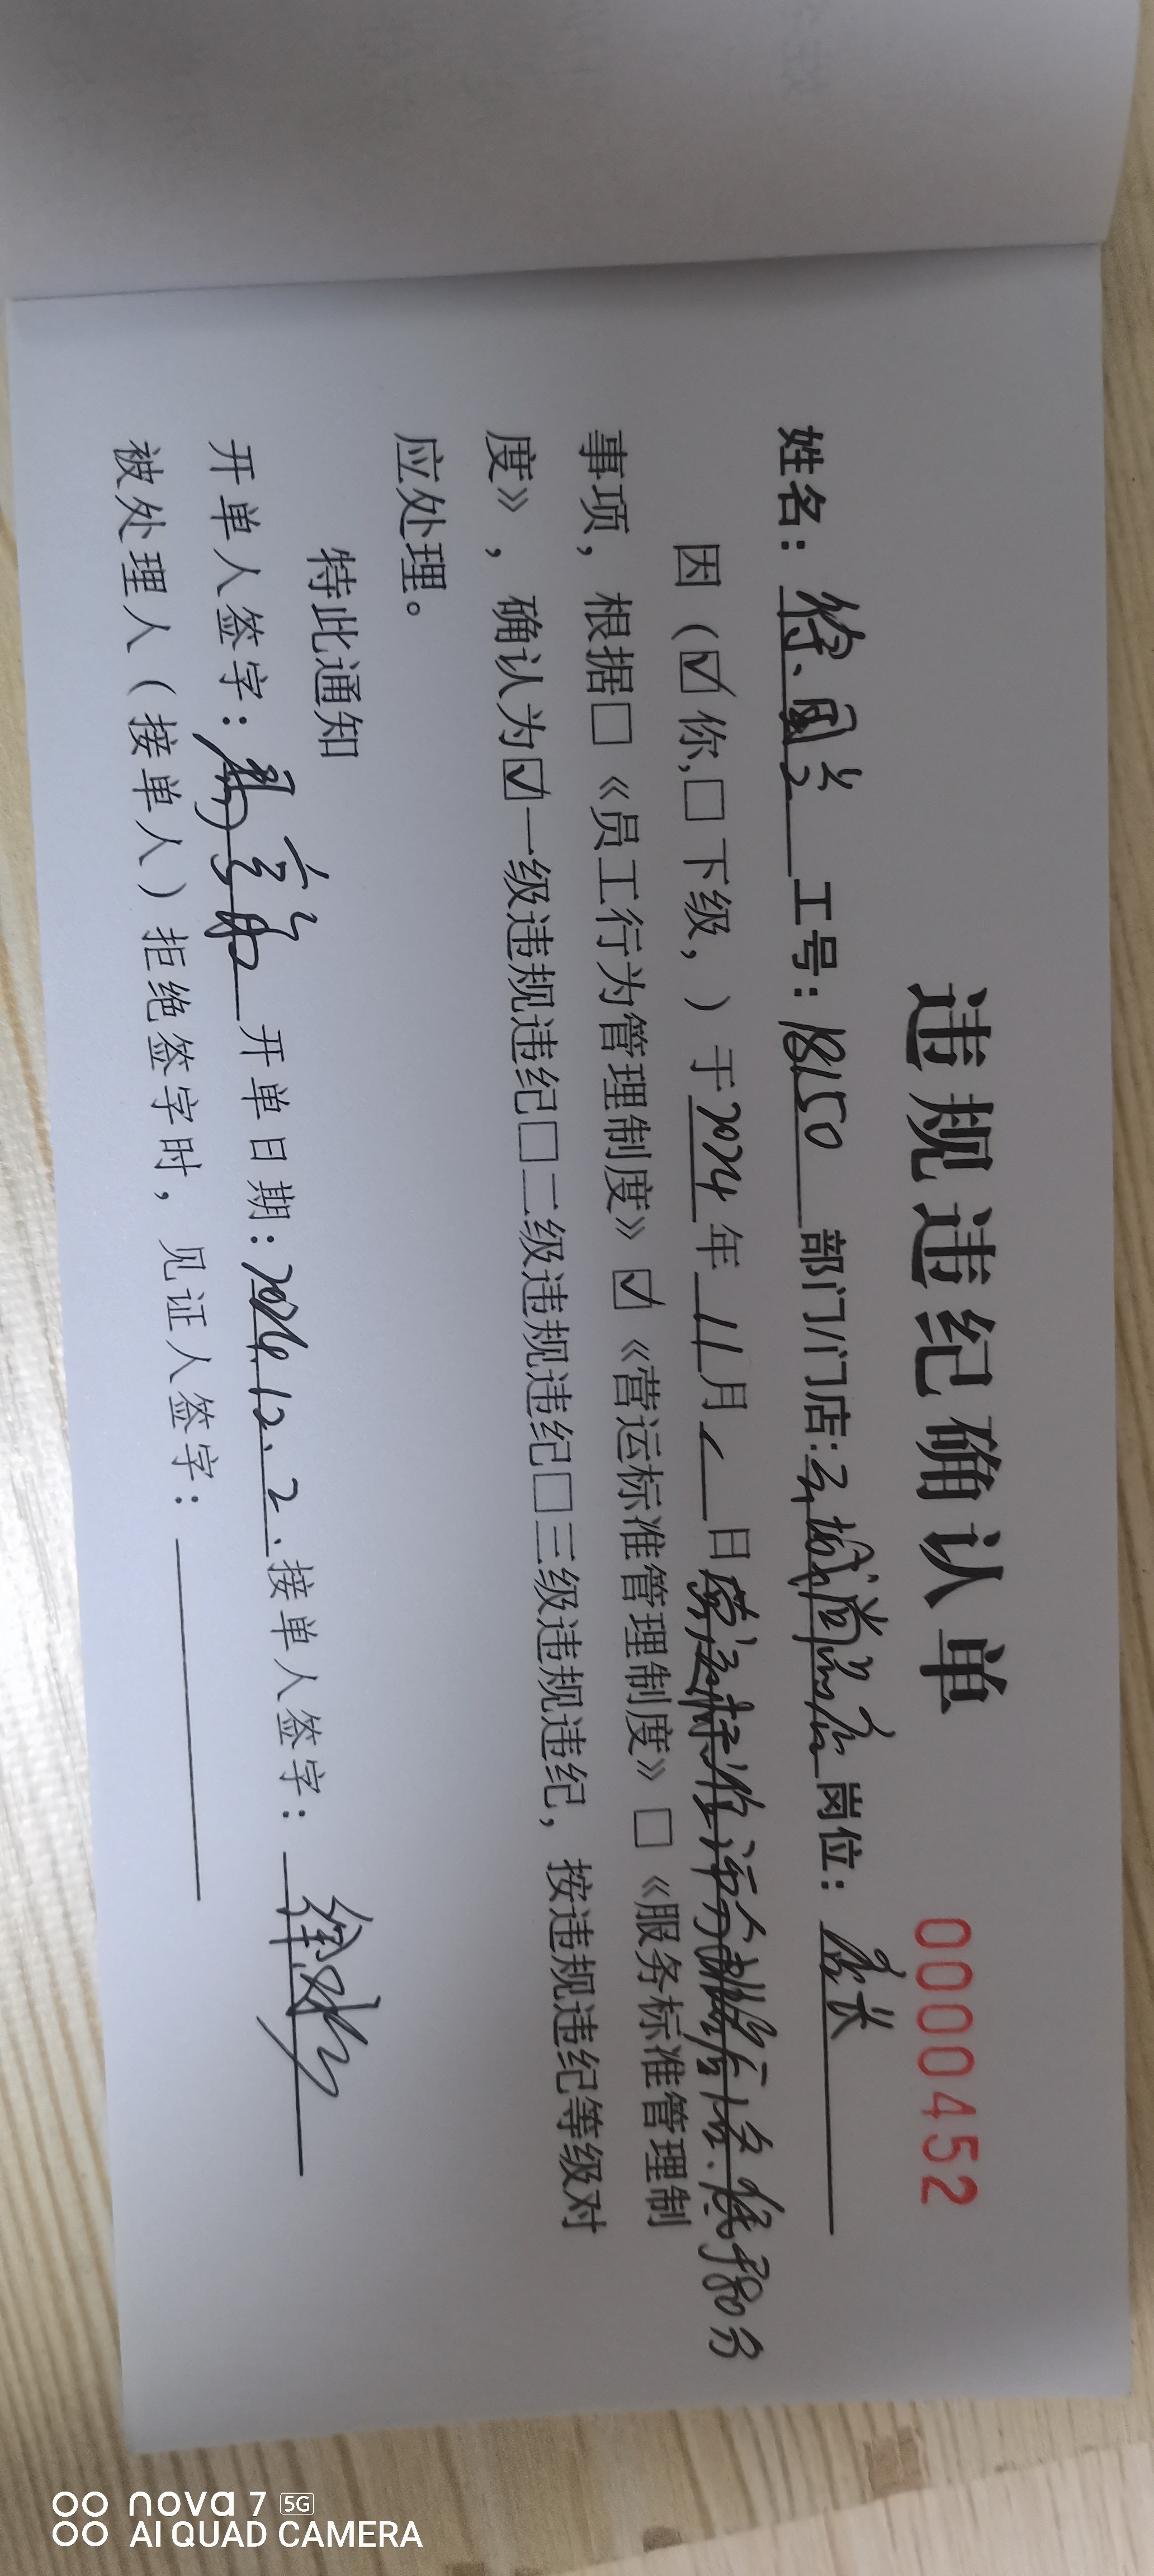 违规违纪确认单 0000452
姓名：徐国兰 工号：18150 部门/门店： 岗位：店长
因（☑你,□下级，）于2024年11月 日营运标准评分 低于80分
事项，根据□《员工行为管理制度》☑《营运标准管理制度》□《服务标准管理制
度》，确认为☑一级违规违纪□二级违规违纪□三级违规违纪，按违规违纪等级对
应处理。
特此通知
开单人签字： 开单日期：2024.12.2. 接单人签字：
被处理人（接单人）拒绝签字时，见证人签字：
nova 7 5G
AI QUAD CAMERA